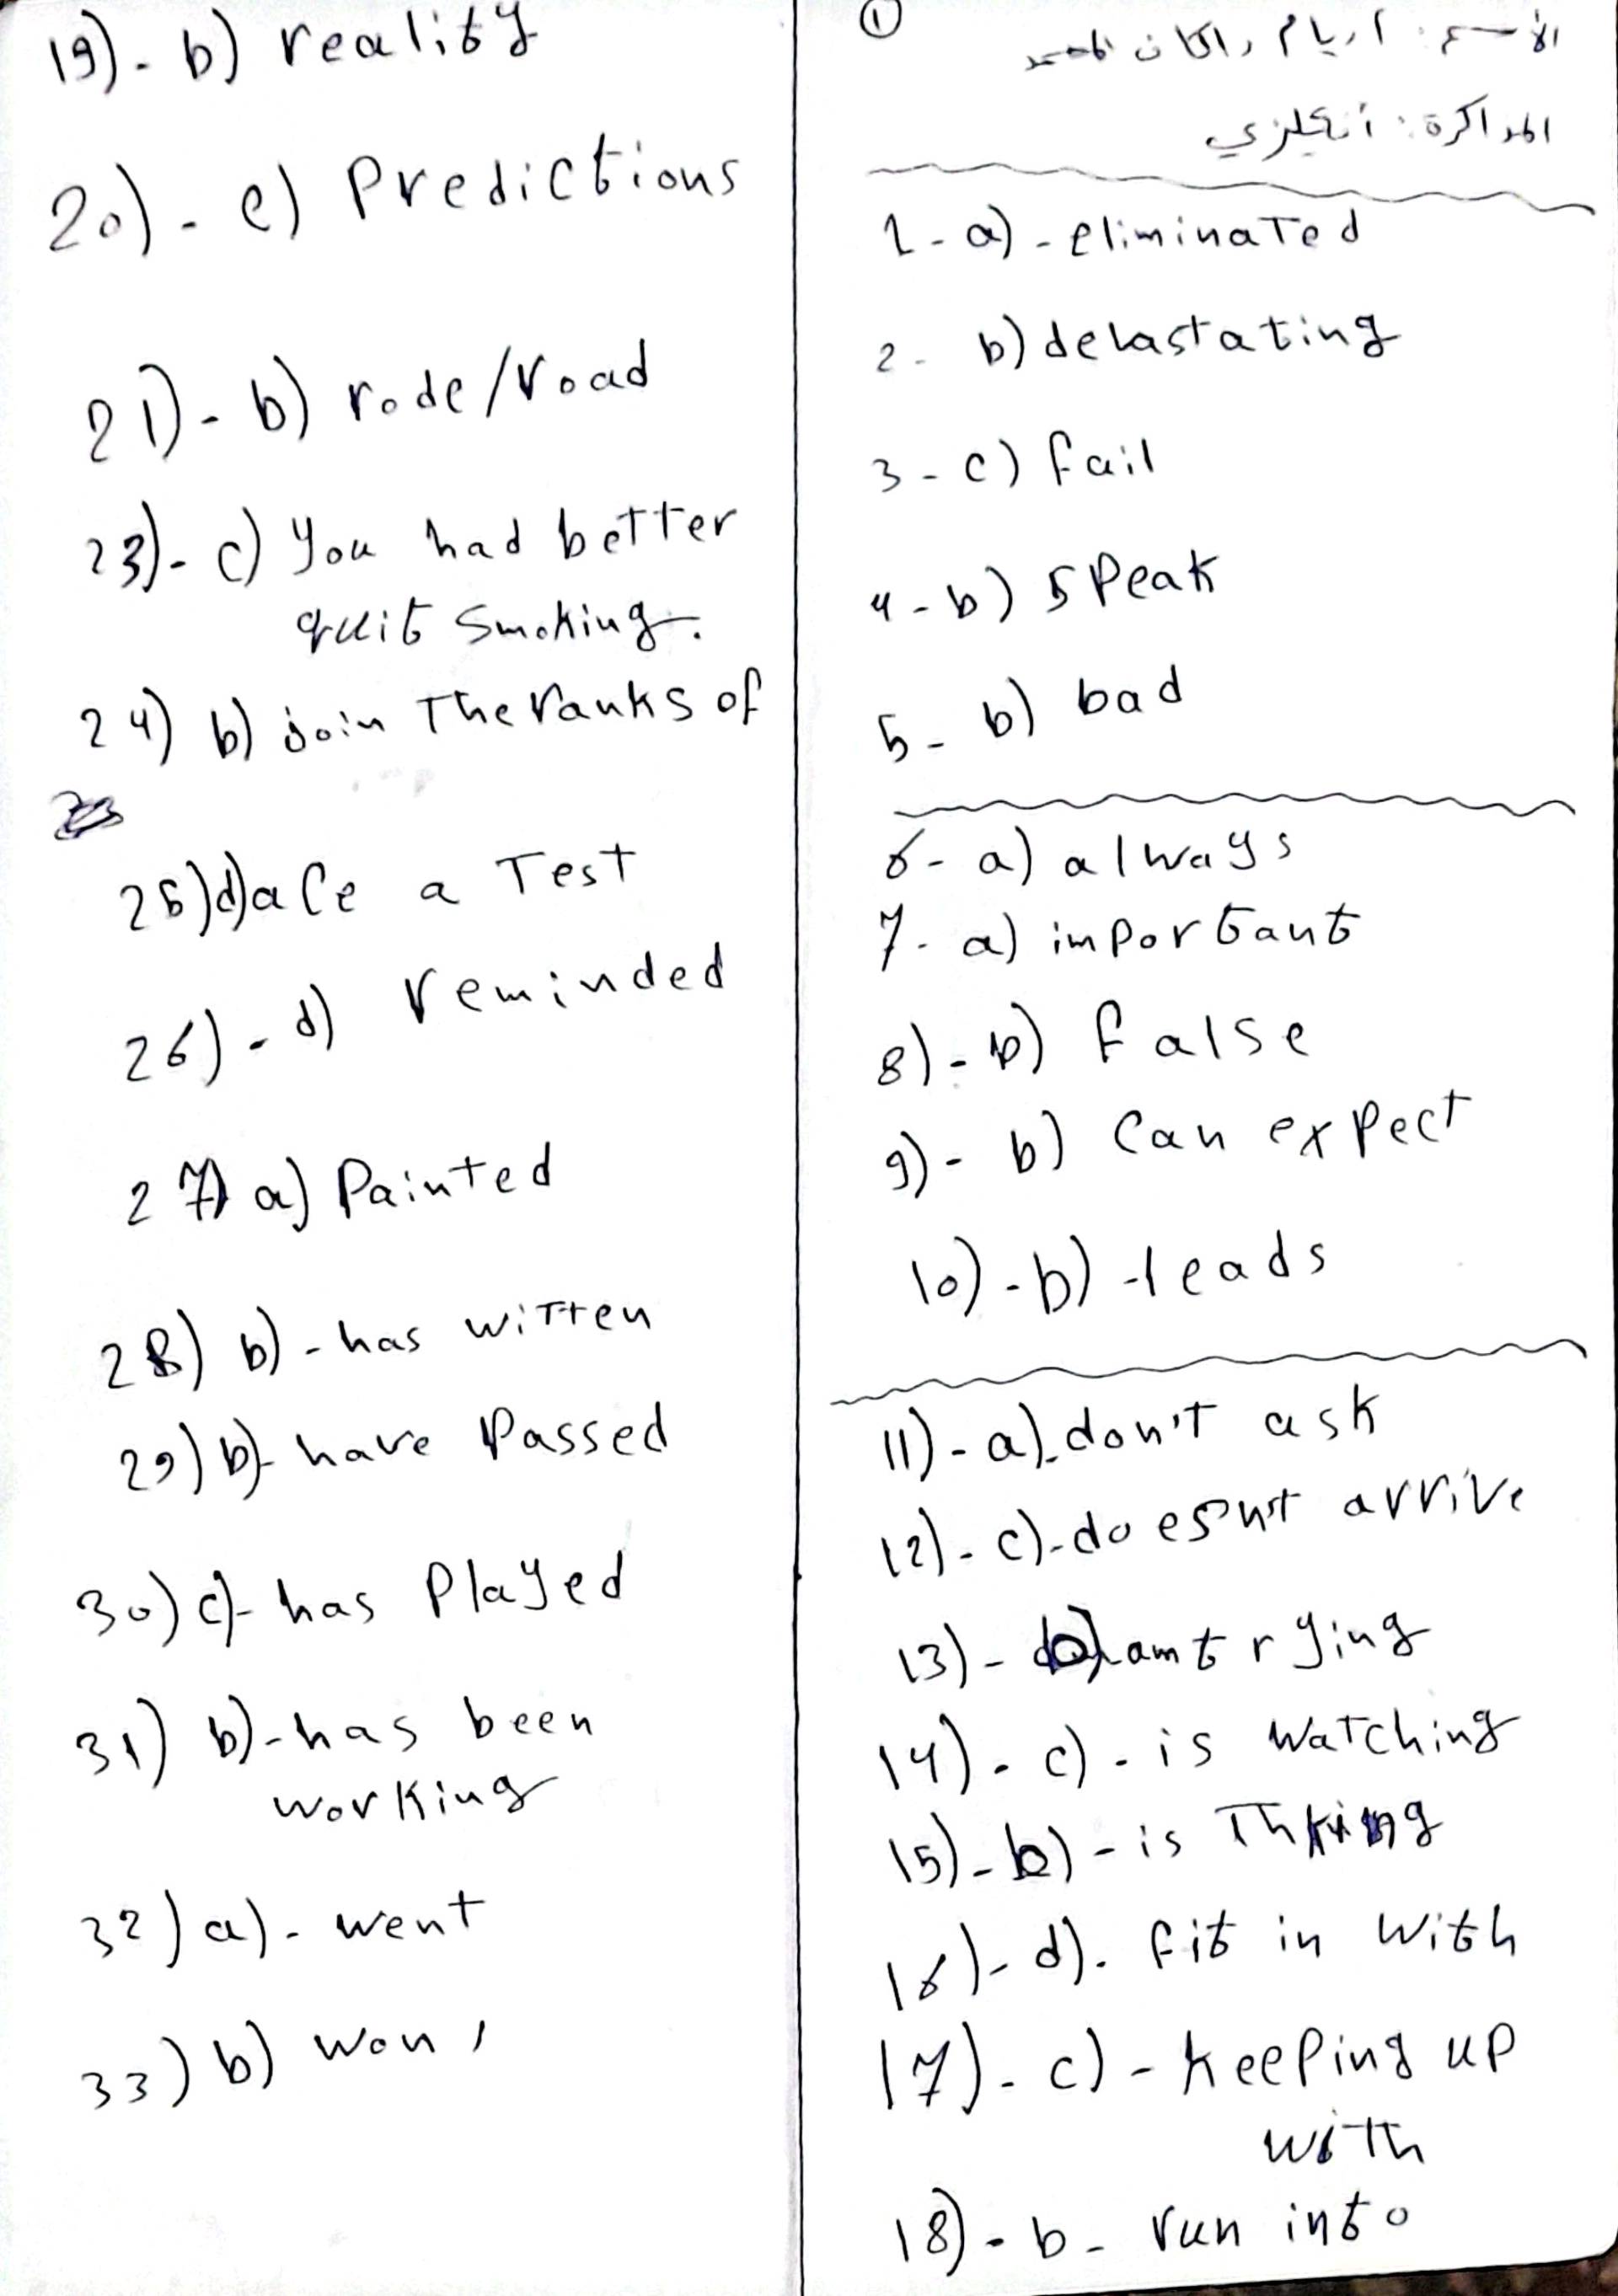 ①
الأسم: أريام راكان محمد
المذاكرة: أنكليزي
1-a)-eliminated
2- b) devastating
3-c) fail
4-b) speak
5- b) bad
6-a) always
7-a) important
8)-b) false
9)-b) Can expect
10)-b)-leads
11)-a)-don't ask
12)-c)-doesn't arrive
13)-b) am trying
14)-c)-is watching
15)-b)-is Thking
16)-d). fit in with
17)-c)-keeping up
with
18)-b- run into
19)-b) reality
20)-c) Predictions
21)-b) rode/road
23)-c) You had better
quit smoking.
24) b) join The ranks of
25)d)ace a Test
26)-d) reminded
27) a) Painted
28) b)-has witten
29) b)-have Passed
30) c)-has Played
31) b)-has been
working
32) a)-went
33) b) won,